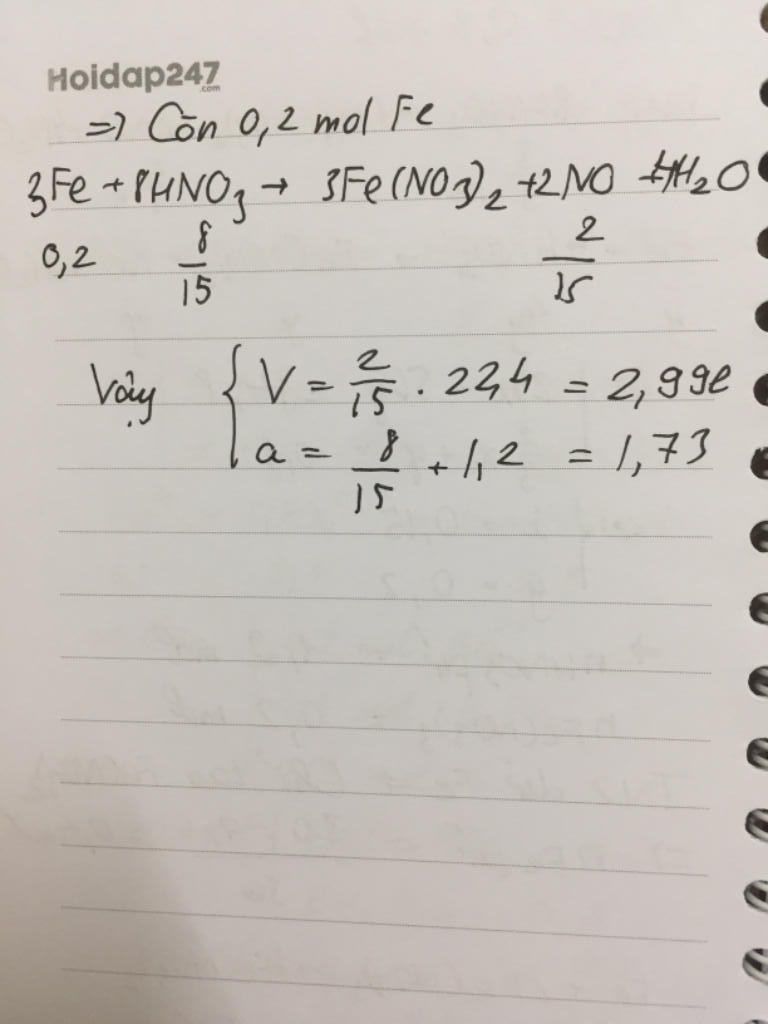 Hoidap247
.com
=> Còn 0,2 mol Fe
3Fe + 8HNO3 → 3Fe(NO3)2 + 2NO + 4H2O
0,2 8/15 2/15
Vậy { V = 2/15 . 22,4 = 2,99l
a = 8/15 + 1,2 = 1,73